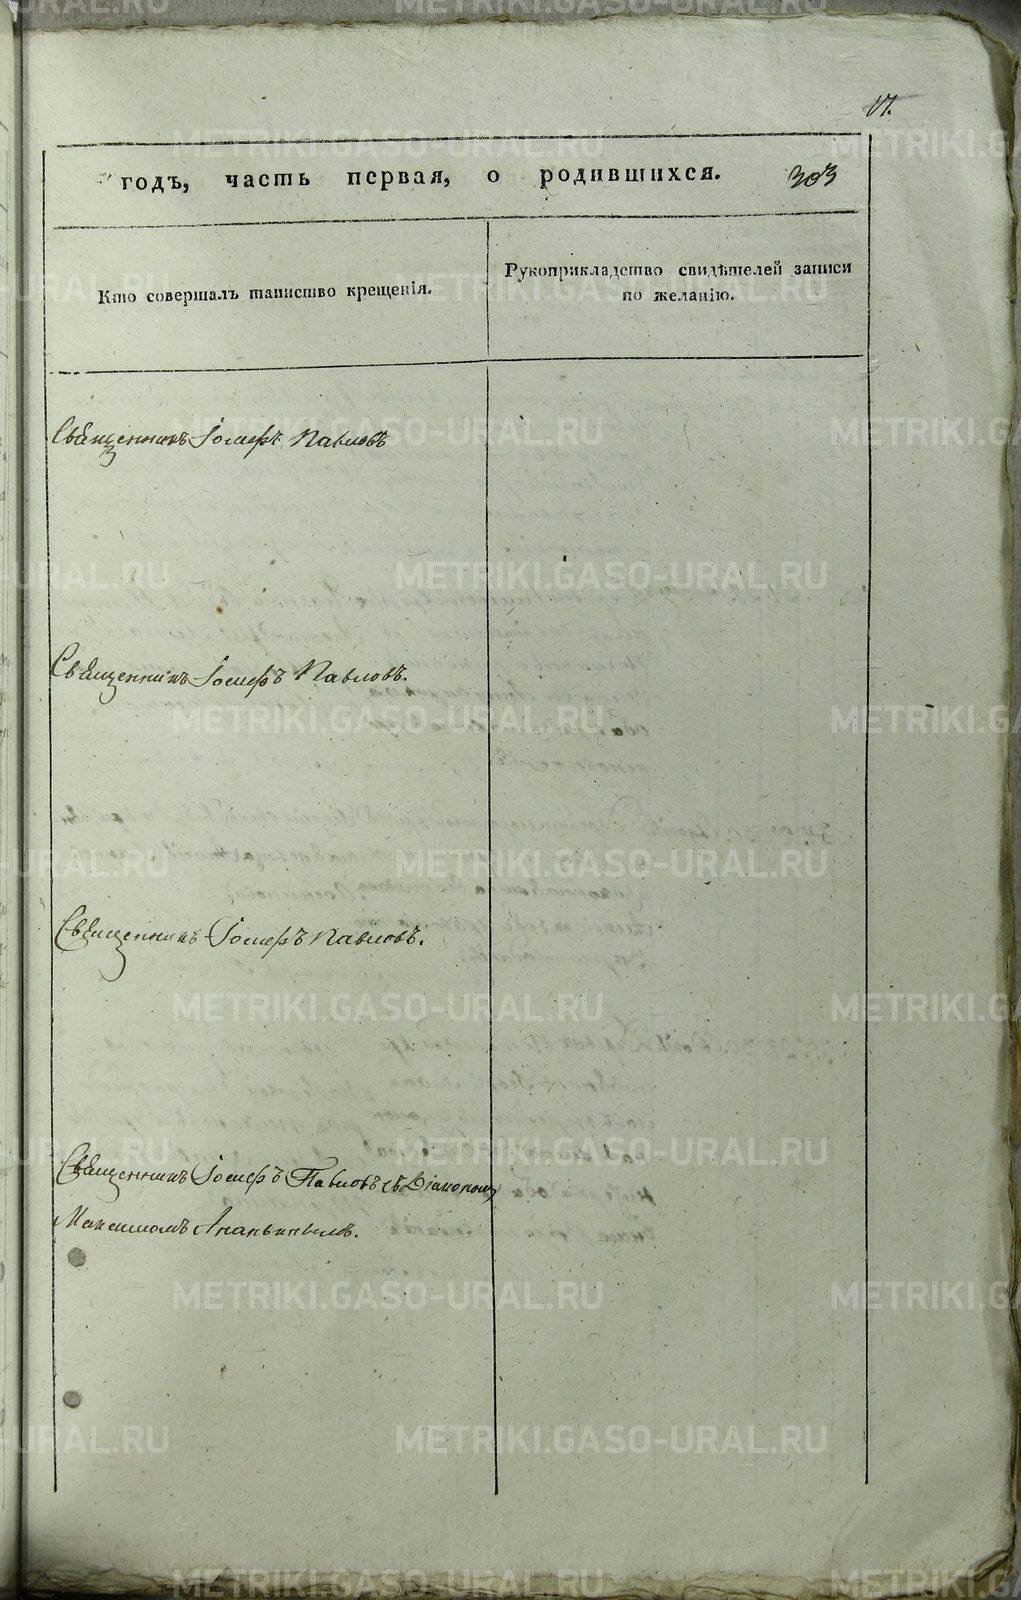 17.
годъ, часть первая, о родившихся. 303
Кто совершалъ таинство крещенія.
Рукоприкладство свидѣтелей записи
по желанію.
Священникъ Іосифъ Павловъ
Священникъ Іосифъ Павловъ.
Священникъ Іосифъ Павловъ.
Священникъ Іосифъ Павловъ съ Діакономъ
Максимомъ
METRIKI.GASO-URAL.RU